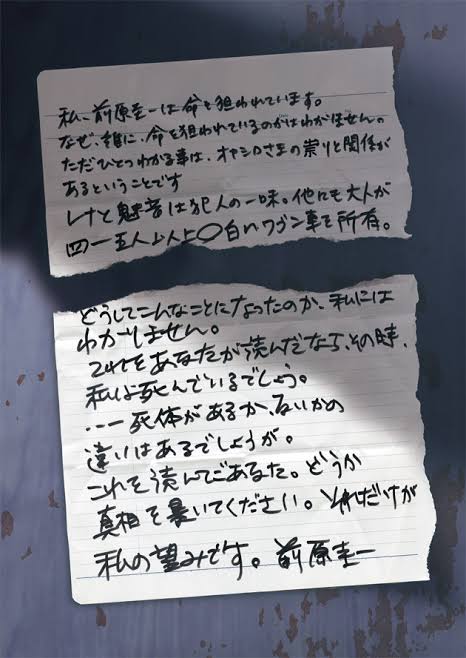 私、前原圭一は命を狙われています。
なぜ、誰に、命を狙われているのかはわかりません。
ただひとつわかる事は、オヤシロさまの祟りと関係が
あるということです
レナと魅音は犯人の一味。他にも大人が
四〜五人以上〇白いワゴン車を所有。
どうしてこんなことになったのか、私には
わかりません。
これをあなたが読んだなら、その時、
私は死んでいるでしょう。
…死体があるか、ないかの
違いはあるでしょうが。
これを読んだあなた。どうか
真相を暴いてください。それだけが
私の望みです。前原圭一